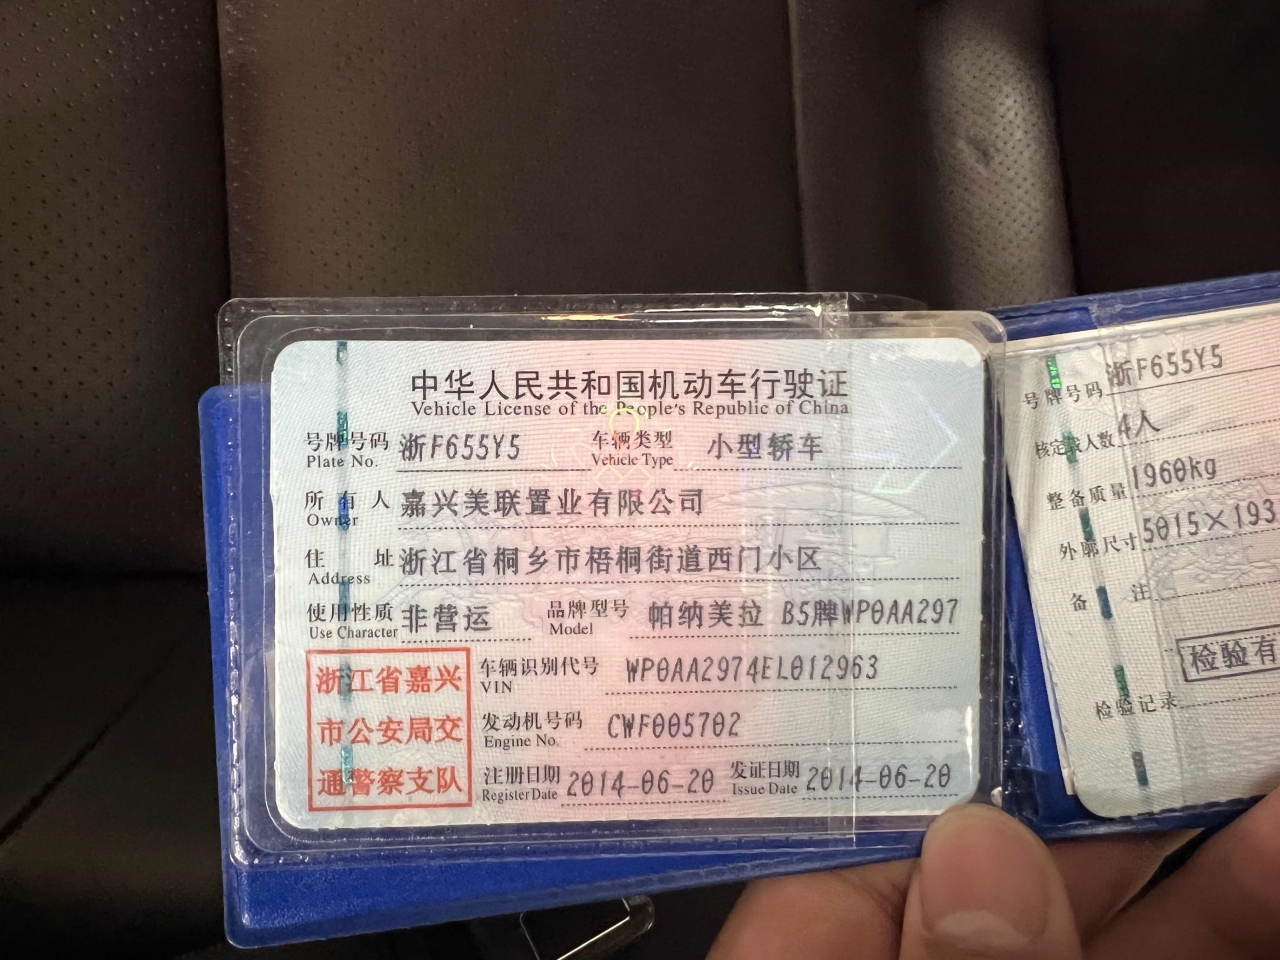 中华人民共和国机动车行驶证
Vehicle License of the People's Republic of China
号牌号码 浙F655Y5 车辆类型 小型轿车
Plate No. Vehicle Type
所有人 嘉兴美联置业有限公司
Owner
住址 浙江省桐乡市梧桐街道西门小区
Address
使用性质 非营运 品牌型号 帕纳美拉 B5牌WP0AA297
Use Character Model
浙江省嘉兴
市公安局交
通警察支队
车辆识别代号 WP0AA2974EL012963
VIN
发动机号码 CWF005702
Engine No.
注册日期 2014-06-20 发证日期 2014-06-20
Register Date Issue Date
号牌号码 浙F655Y5
核定载人数 4人
整备质量 1960kg
外廓尺寸 5015×193
备注
检验有
检验记录